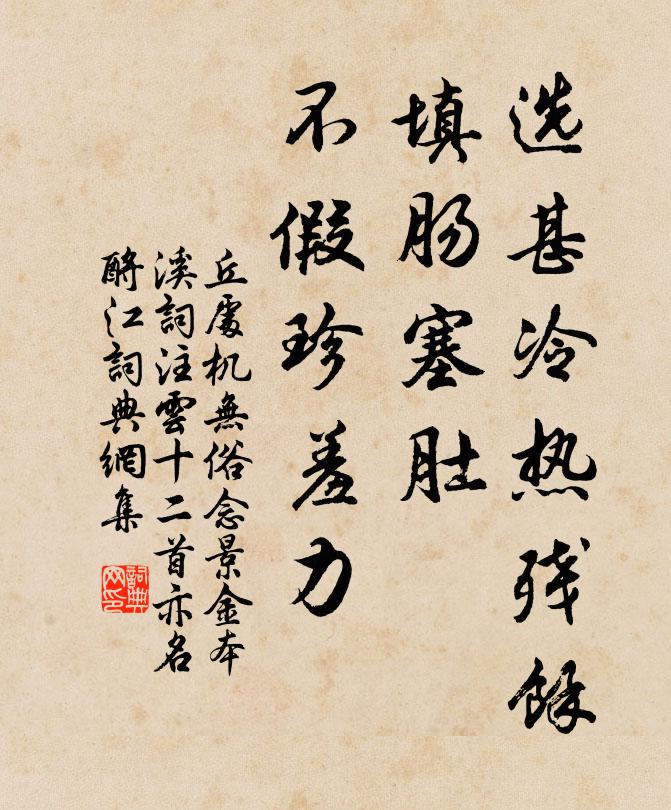 选甚冷热残馀
填肠塞肚
不假珍羞力
丘處机無俗念景金本
溪詞注雲十二首亦名
酹江詞典網集
詞典网印